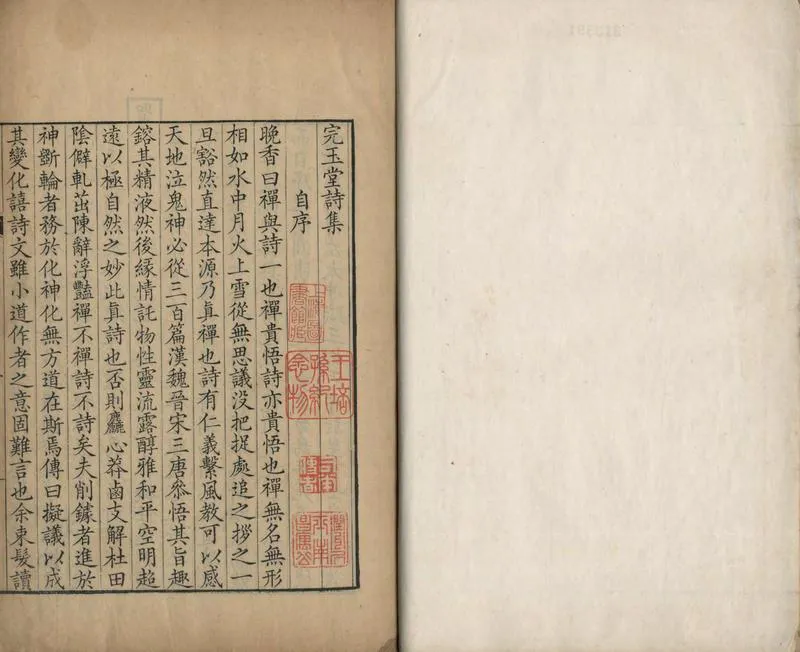 完玉堂詩集
自序
晚香曰禪與詩一也禪貴悟詩亦貴悟也禪無名無形
相如水中月火上雪從無思議没把捉處追之拶之一
旦豁然直達本源乃眞禪也詩有仁義繫風教可以感
天地泣鬼神必從三百篇漢魏晉宋三唐叅悟其旨趣
鎔其精液然後緣情託物性靈流露醇雅和平空明超
遠以極自然之妙此眞詩也否則麤心莽鹵支解杜田
陰僻軋茁陳辭浮豔禪不禪詩不詩矣夫削鐻者進於
神斵輪者務於化神化無方道在斯焉傳曰擬議以成
其變化語詩文雖小道作者之意固難言也余束髮讀
上海圖書館藏
王培孫紀念物